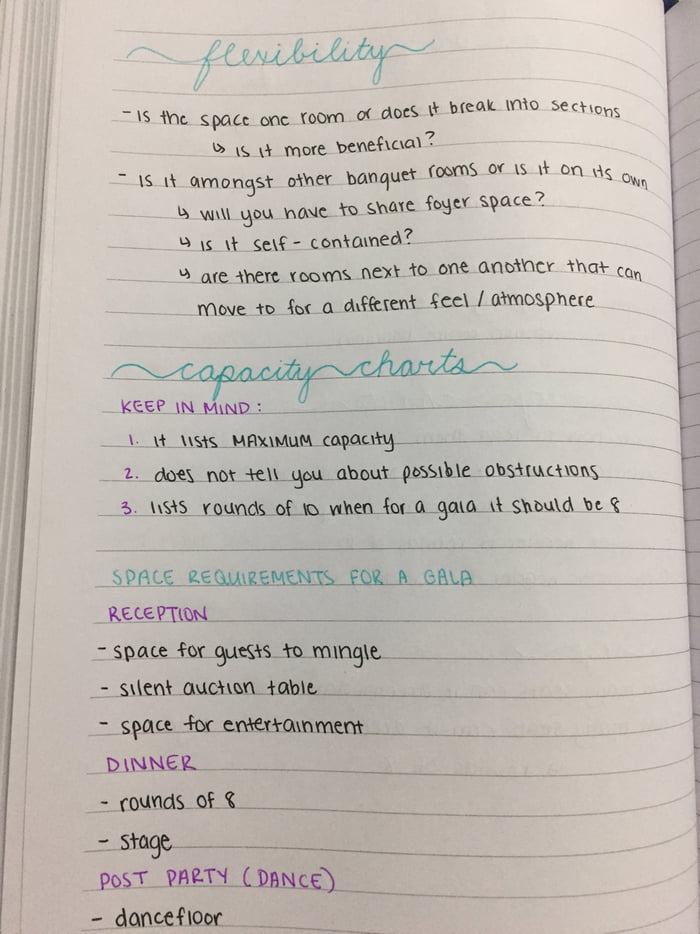 flexibility
- Is the space one room or does it break into sections
↳ is it more beneficial?
- Is it amongst other banquet rooms or is it on its own
↳ will you have to share foyer space?
↳ is it self-contained?
↳ are there rooms next to one another that can
move to for a different feel / atmosphere
capacity charts
KEEP IN MIND:
1. it lists MAXIMUM capacity
2. does not tell you about possible obstructions
3. lists rounds of 10 when for a gala it should be 8
SPACE REQUIREMENTS FOR A GALA
RECEPTION
- space for guests to mingle
- silent auction table
- space for entertainment
DINNER
- rounds of 8
- stage
POST PARTY (DANCE)
- dancefloor